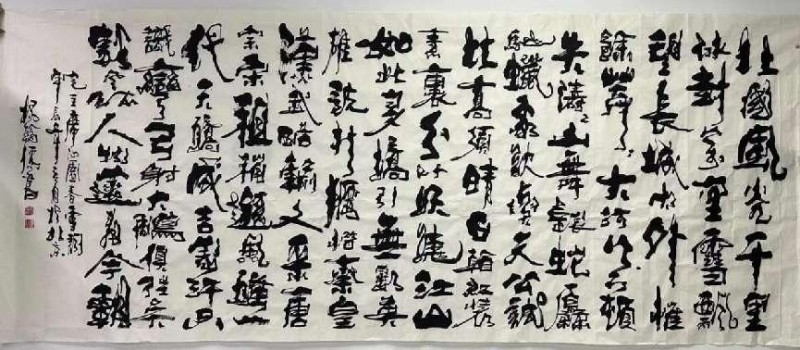 北國風光千里
冰封萬里雪飄
望長城內外惟
餘莽莽大河上下頓
失滔滔山舞銀蛇原
馳蠟象欲與天公試
比高須晴日看紅裝
素裹分外妖嬈江山
如此多嬌引無數英
雄競折腰惜秦皇
漢武略輸文采唐
宗宋祖稍遜風騷一
代天驕成吉思汗只
識彎弓射大鵰俱往矣
數風流人物還看今朝
毛主席沁園春雪詞
月於北京